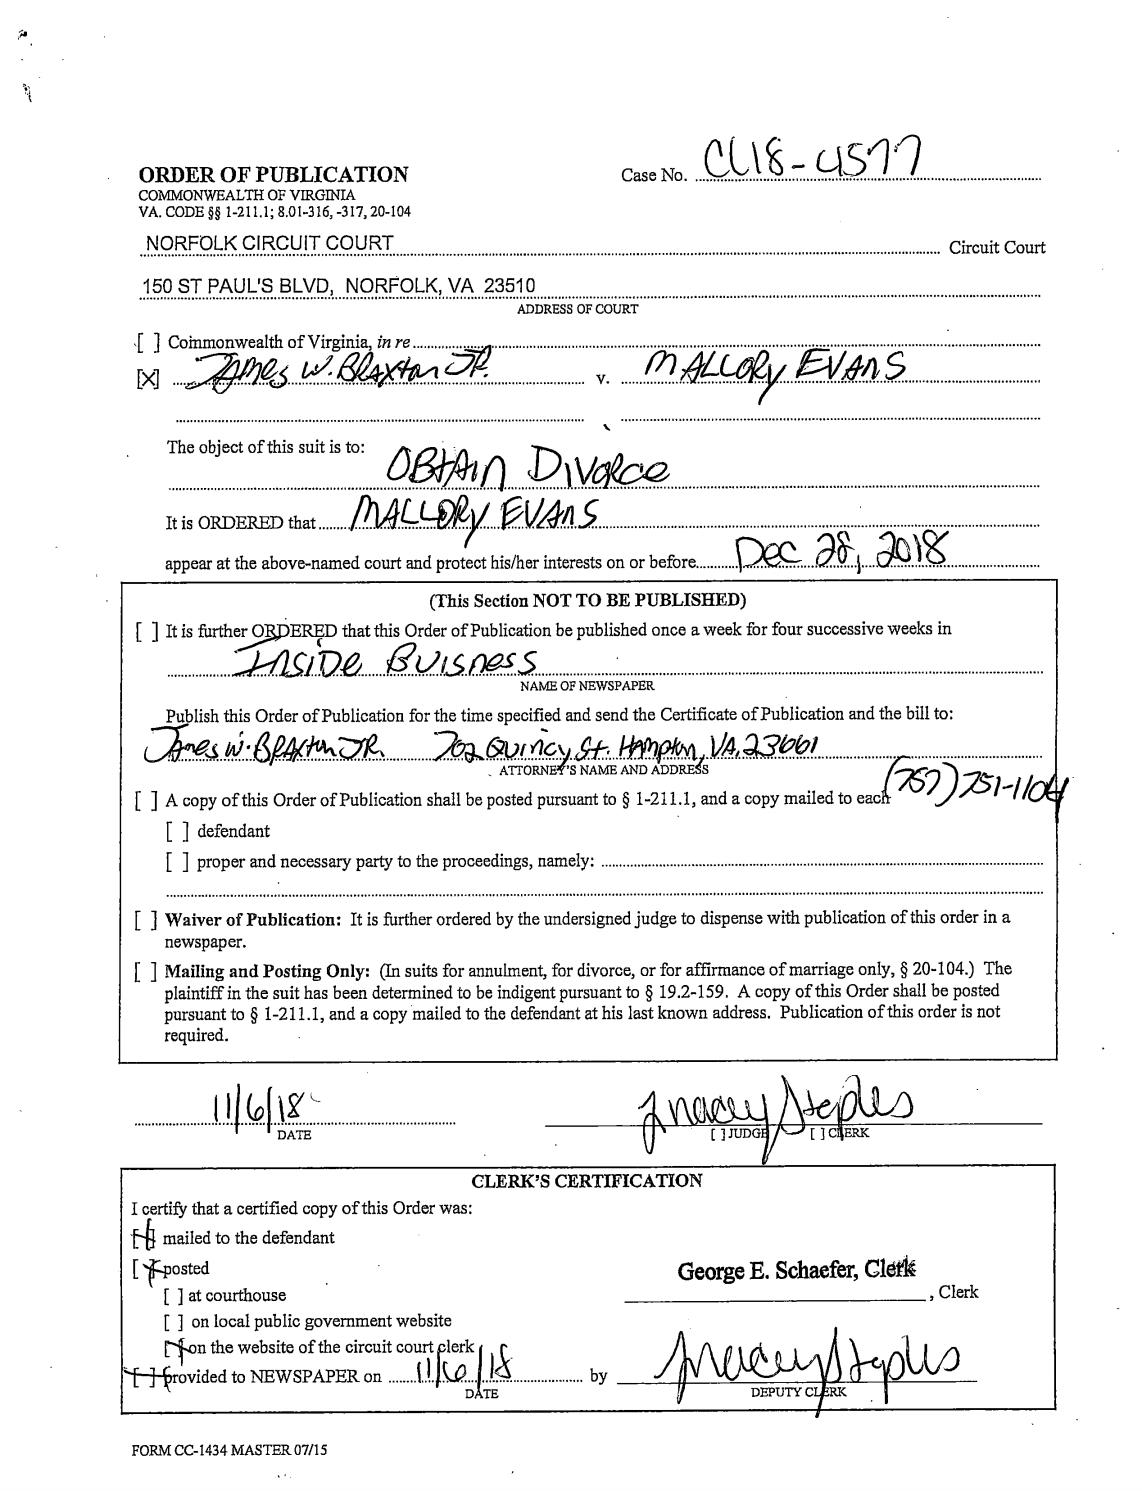 ORDER OF PUBLICATION
Case No. CL18-4577
COMMONWEALTH OF VIRGINIA
VA. CODE §§ 1-211.1; 8.01-316, -317, 20-104
NORFOLK CIRCUIT COURT Circuit Court
150 ST PAUL'S BLVD, NORFOLK, VA 23510
ADDRESS OF COURT
[ ] Commonwealth of Virginia, in re
[X] James W. Braxton JR. v. MALLORY EVANS
The object of this suit is to:
OBTAIN DIVORCE
It is ORDERED that MALLORY EVANS
appear at the above-named court and protect his/her interests on or before Dec 28, 2018
(This Section NOT TO BE PUBLISHED)
[ ] It is further ORDERED that this Order of Publication be published once a week for four successive weeks in
INSIDE BUISNESS
NAME OF NEWSPAPER
Publish this Order of Publication for the time specified and send the Certificate of Publication and the bill to:
James W. BRAXton JR. 702 QUINCY St. Hampton, VA, 23661
ATTORNEY'S NAME AND ADDRESS
(757) 751-1104
[ ] A copy of this Order of Publication shall be posted pursuant to § 1-211.1, and a copy mailed to each
[ ] defendant
[ ] proper and necessary party to the proceedings, namely:
[ ] Waiver of Publication: It is further ordered by the undersigned judge to dispense with publication of this order in a
newspaper.
[ ] Mailing and Posting Only: (In suits for annulment, for divorce, or for affirmance of marriage only, § 20-104.) The
plaintiff in the suit has been determined to be indigent pursuant to § 19.2-159. A copy of this Order shall be posted
pursuant to § 1-211.1, and a copy mailed to the defendant at his last known address. Publication of this order is not
required.
11/6/18 Tracey Staples
DATE [ ] JUDGE [ ] CLERK
CLERK'S CERTIFICATION
I certify that a certified copy of this Order was:
[X] mailed to the defendant
[X] posted
George E. Schaefer, Clerk
[ ] at courthouse
, Clerk
[ ] on local public government website
[X] on the website of the circuit court clerk
[X] provided to NEWSPAPER on 11/6/18 by Tracey Staples
DATE DEPUTY CLERK
FORM CC-1434 MASTER 07/15